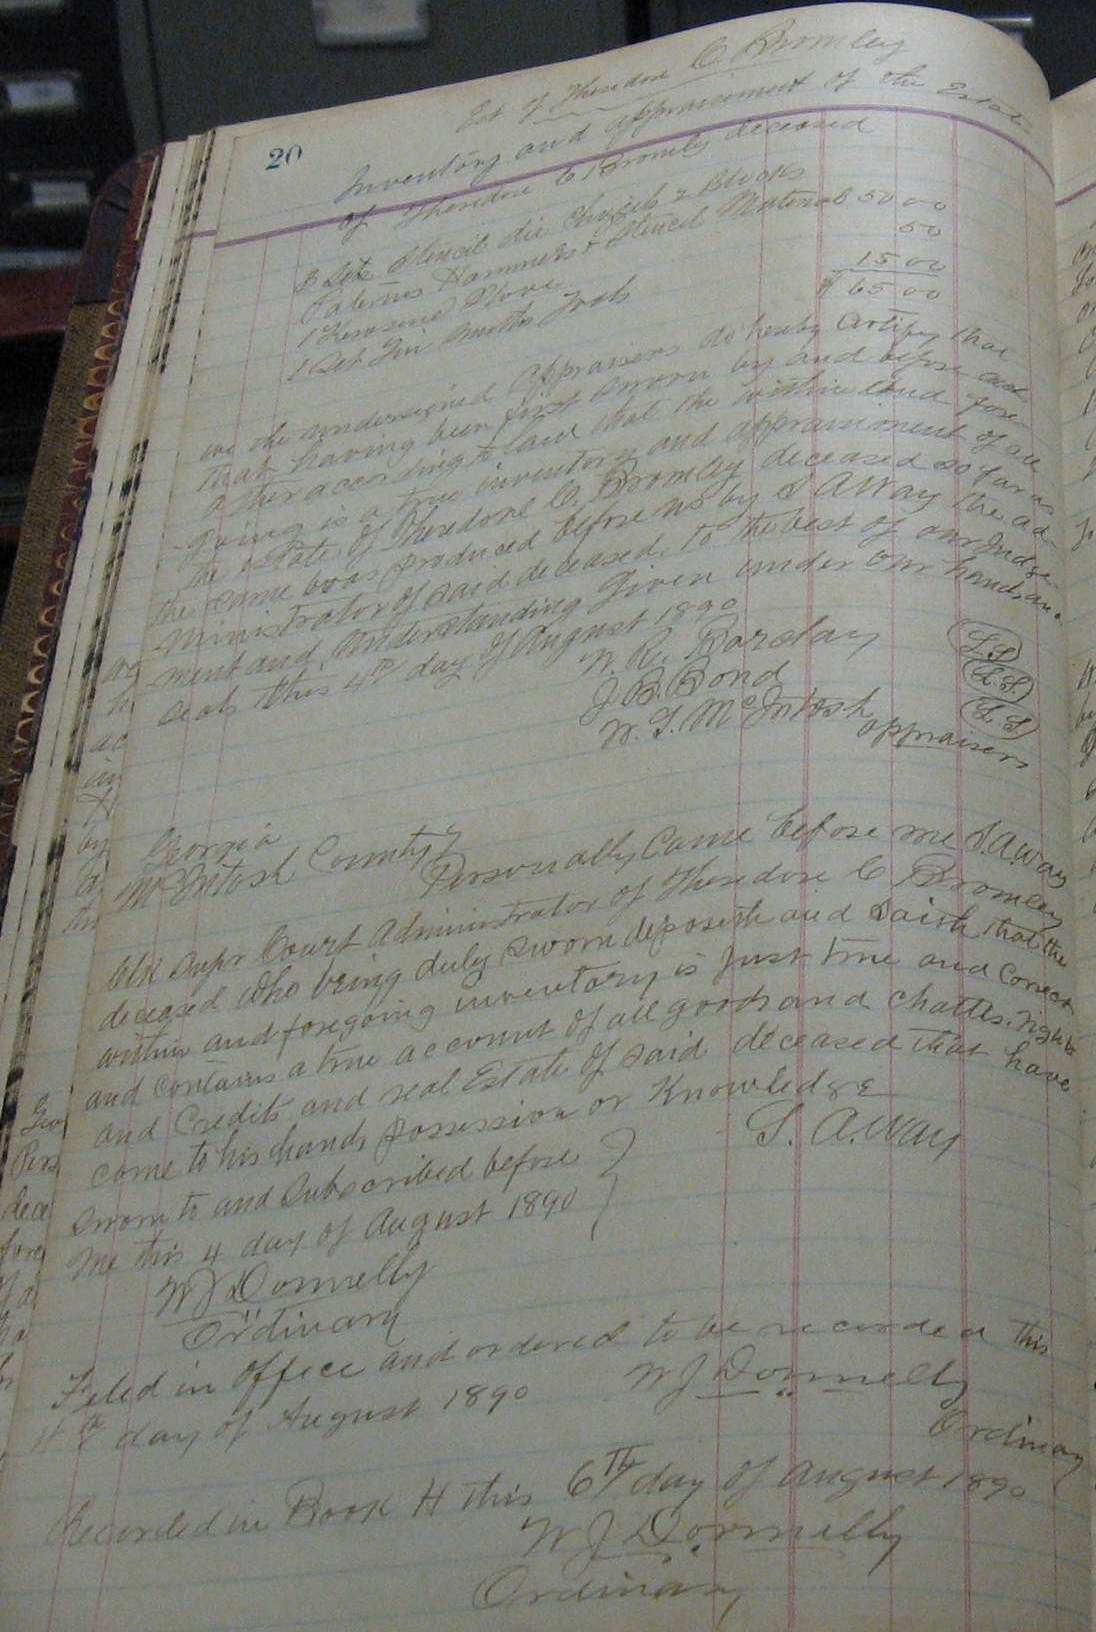 20
Est of Theodore C Bromley
Inventory and appraisement of the Estate
of Theodore C Bromley deceased
3 Sets Stencils die Chizels & Blocks
Paterns Hammers & Stencil Material 50 00
1 Kerosene Stove 50
1 Set Tin Smiths Tools 15 00
$ 65 00
we the undersigned appraisers do hereby Certify that
that having been first sworn by and before
according to law that the within and fore
going is a true inventory and appraisement of all
the estate of Theodore C. Bromley deceased so far as
the same was produced before us by S A Way the ad-
ministrator of said deceased, to the best of our Judge
ment and understanding Given under our hands and
seals this 4th day of August 1890
W. R. Barclay (L.S)
J B. Bond (L.S)
W. G. McIntosh (L.S)
appraisers
Georgia
McIntosh County }
Personally Came before me S. A. Way
Clk Supr Court Administrator of Theodore C Bromley
deceased who being duly sworn deposeth and saith that the
within and foregoing inventory is Just true and correct
and contains a true account of all goods and chattles, rights
and Credits and real Estate of said deceased that have
come to his hands possession or Knowledge
S. A. Way
Sworn to and subscribed before }
me this 4 day of August 1890
W J Donnelly
Ordinary
Filed in office and ordered to be recorded this
4th day of August 1890 W J Donnelly
Ordinary
Recorded in Book H this 6TH day of August 1890
W J Donnelly
Ordinary